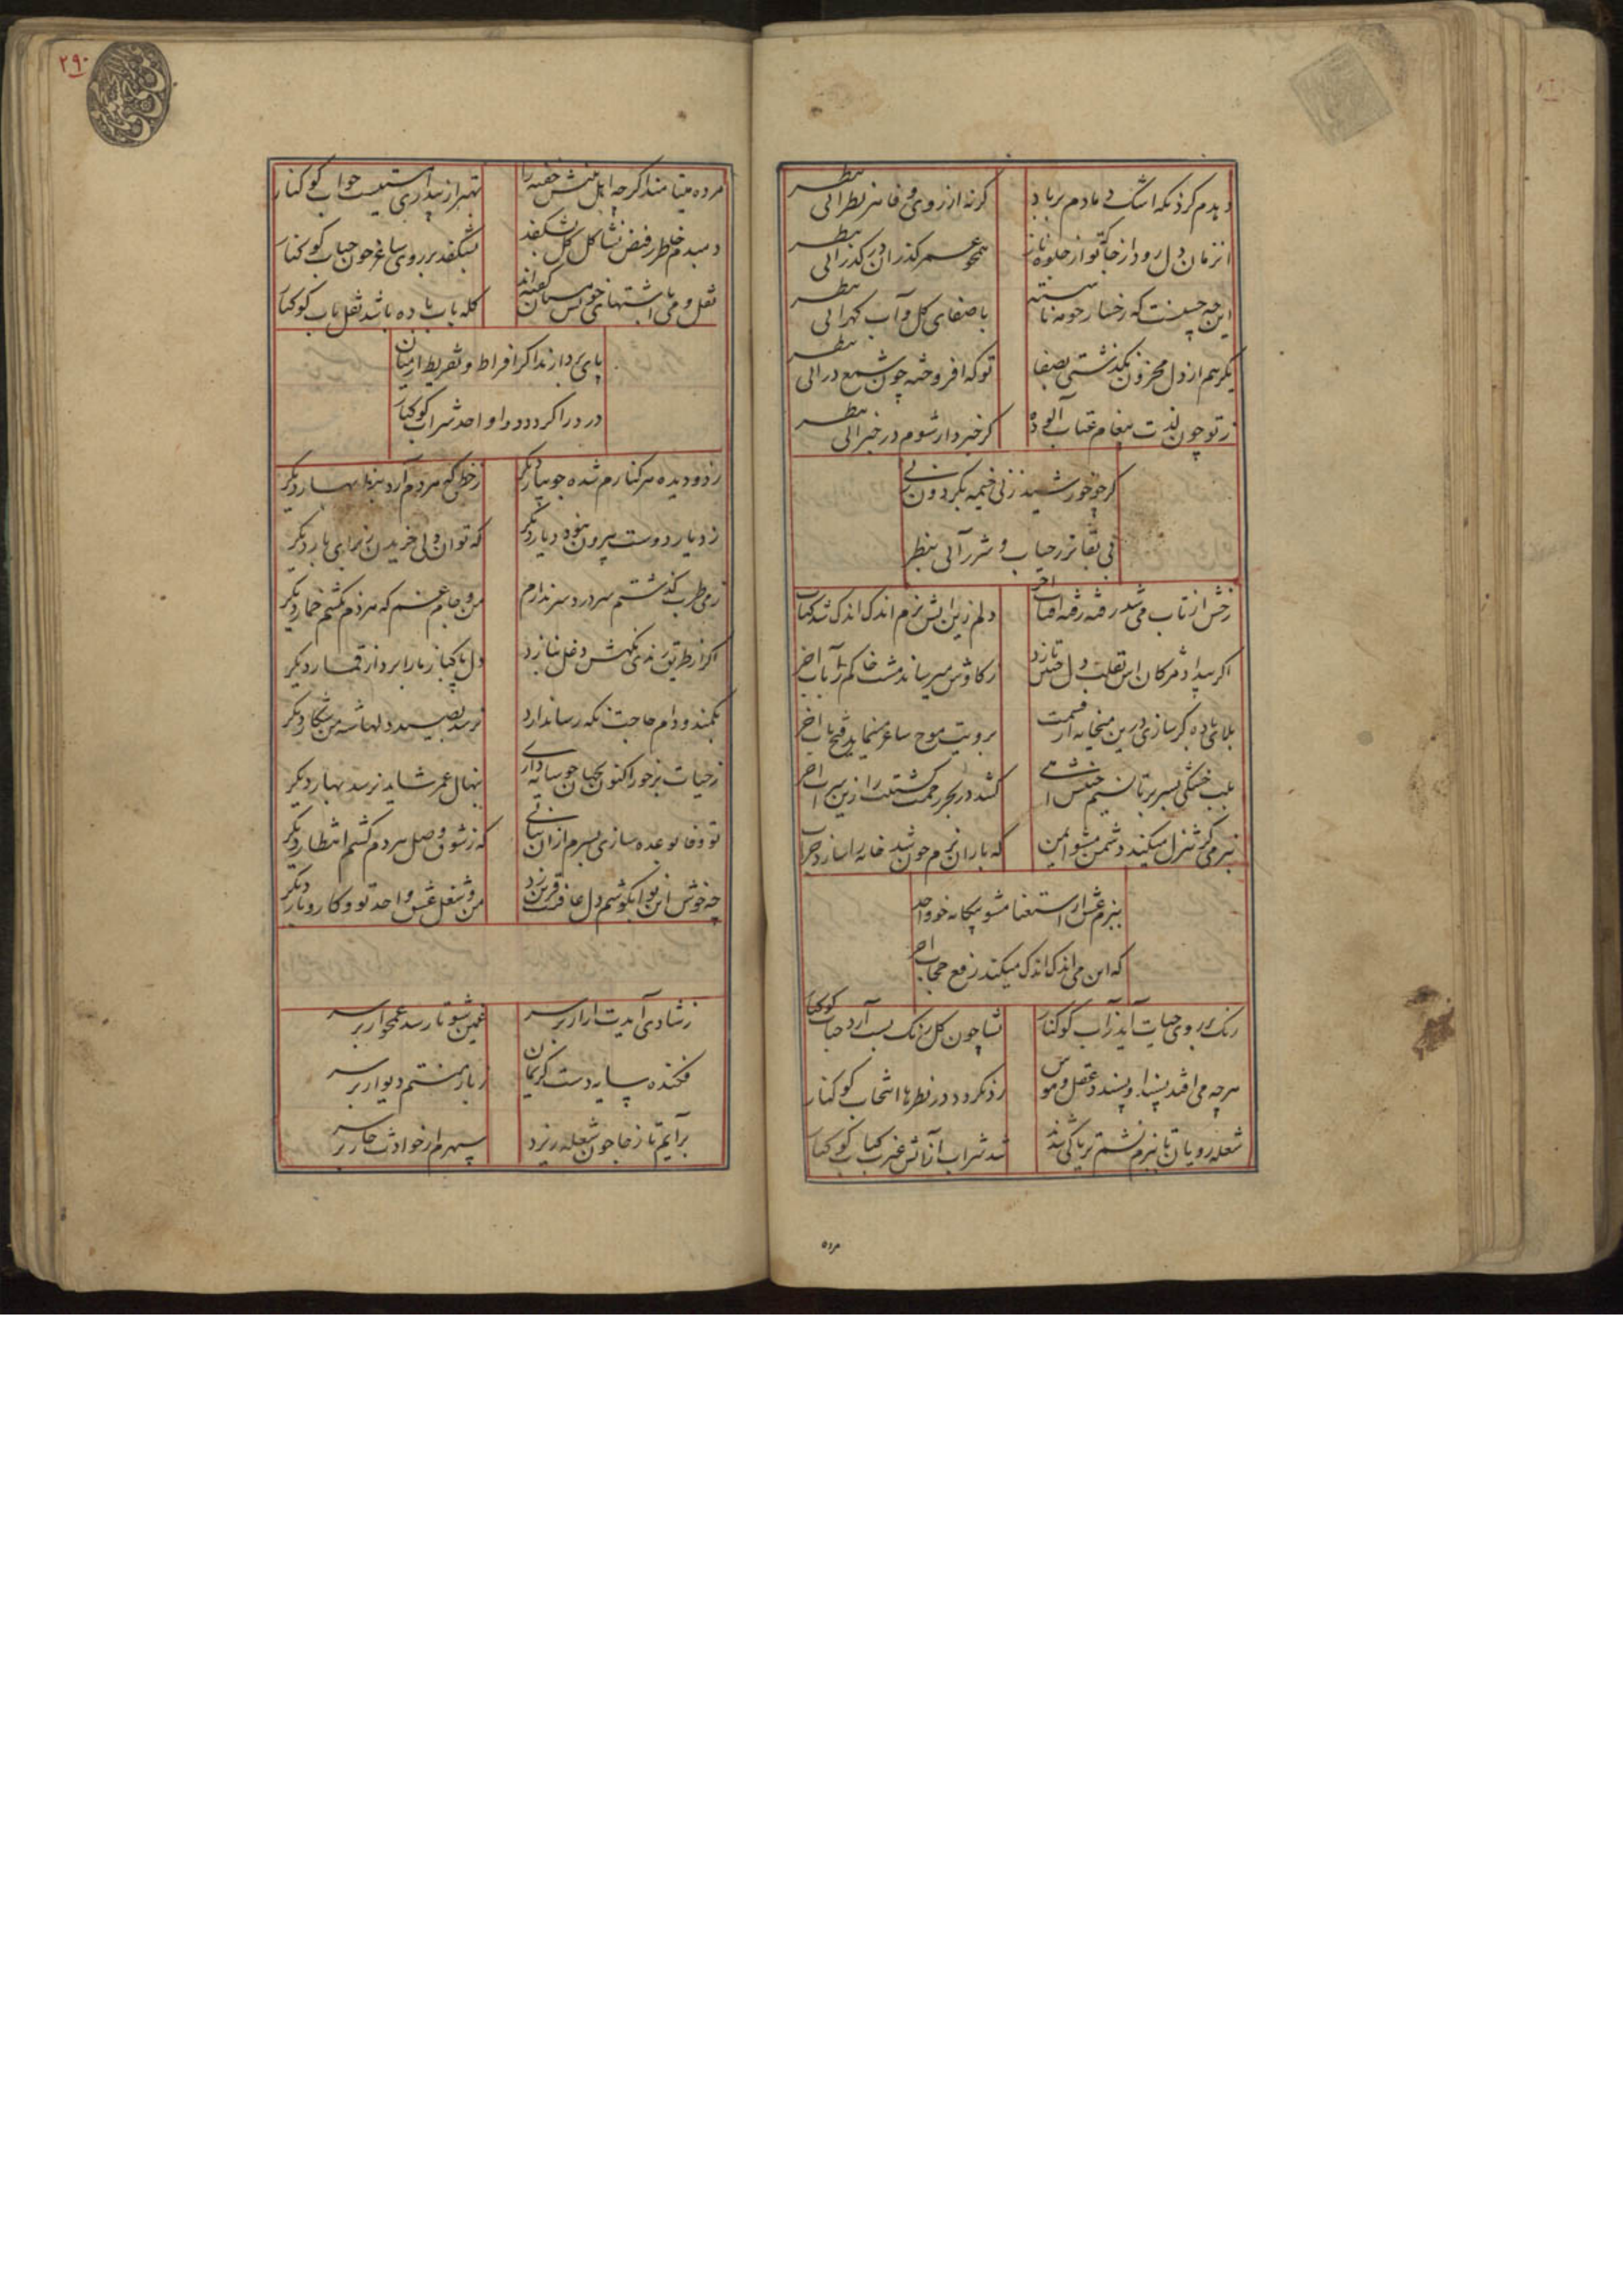 دیدم کرد نکه اشک دمادم بر باد کرنه از روی وفا در نظر آئی بنظر
انزمان دل رود از جا که تو از جلوه ناز همچو عمر گذران در گذر آئی بنظر
این چه حسنست که رخسار چو مه ناشسته با صفای گل و آب گهر آئی بنظر
یکرهم از دل محزون نگذشتی بصفا تو که افروخته چون شمع در آئی بنظر
ز تو چون لذت پیغام عتاب آلوده گر خبردار شوم در خبر آئی بنظر
گر چو خورشید زنی خیمه بگردون
بی بقا تر ز حباب و شرر آئی بنظر
رخش از تاب می شد رفته رفته آفتاب آخر دلم زین آتش نرم اندک اندک شد کباب آخر
اگر بیداد مژکان اینقلب دل چنین تازد ز کاوش میرساند مشت خاکم را بآب آخر
بلائی باده گر سازی درین میخانه ات قسمت برویت موج ساغر مینماید فتح باب آخر
بلب خشکی بسر بر تا نسیم کشد در بحر رحمت کشتیت را زین سراب آخر
بنرمی گر تنزل میکند دشمن مشو ایمن که باران نرم چون شد خانه را سازد خراب آخر
ببزم عشق از استغنا مشو بیگانه خو واحد
که این می اندک اندک میکند رفع حجاب آخر
رنگ بر روی حیات آید ز آب کوکنار نشا چون گل رنگ بست آرد حباب کوکنار
هرچه می افتد پسندا و پسند عقل و هوش رد نگردد در نظرها انتخاب کوکنار
شعله رویان تا ببزم نشئه تریاکی شدند شد شراب از آتش غیرت کباب کوکنار
مرده
۲۹۰
مرده میتا مند اگرچه اهل بینش خفته را بهتر از بیداری است خواب کوکنار
دمبدم خاطر ز فیض نشا گل گل بشکفد بشکفد بر روی ساغر چون حباب کوکنار
نقل و می با اشتهای خویش مستان گفته اند کله باب باده باشد نقل باب کوکنار
پای بردارند اگر افراط و تفریط از میان
درد را گردد دوا واحد شراب کوکنار
ز دو دیده هر کنارم شده جویبار دیگر ز خطی که هر دم آرد بنظر بهار دیگر
ز دیار دوست بیرون نبود دیار دیگر که توان دلی خریدن ز برای یار دیگر
ز می طرب گذشتم سر درد سر ندارم من و جام غم که هر دم نکشم خمار دیگر
اگر از طریق رندی نگهش دغل نبازد دل پاکباز ما را برد از قمار دیگر
بکمند و دام حاجت نگه رسا ندارد نرسد بصید دلها شه من شکار دیگر
ز حیات برخور اکنون بجهان چو سایه داری بنهال عمر شاید نرسد بهار دیگر
تو وفا بوعده سازی بسرم ازان نیائی که ز شوق وصل هر دم کشم انتظار دیگر
چه خوش این نوا بگوشم دل عافیت قرین زد من و شغل عشق واحد تو و کار و بار دیگر
ز شادی آیدت ار بار بر سر غمین شو تا رسد غمخوار بر سر
فکنده سایه دست کریمان ز بار منتم دیوار بر سر
برآیم تا ز جا چون شعله ریزد سپهرم از حوادث خار بر سر